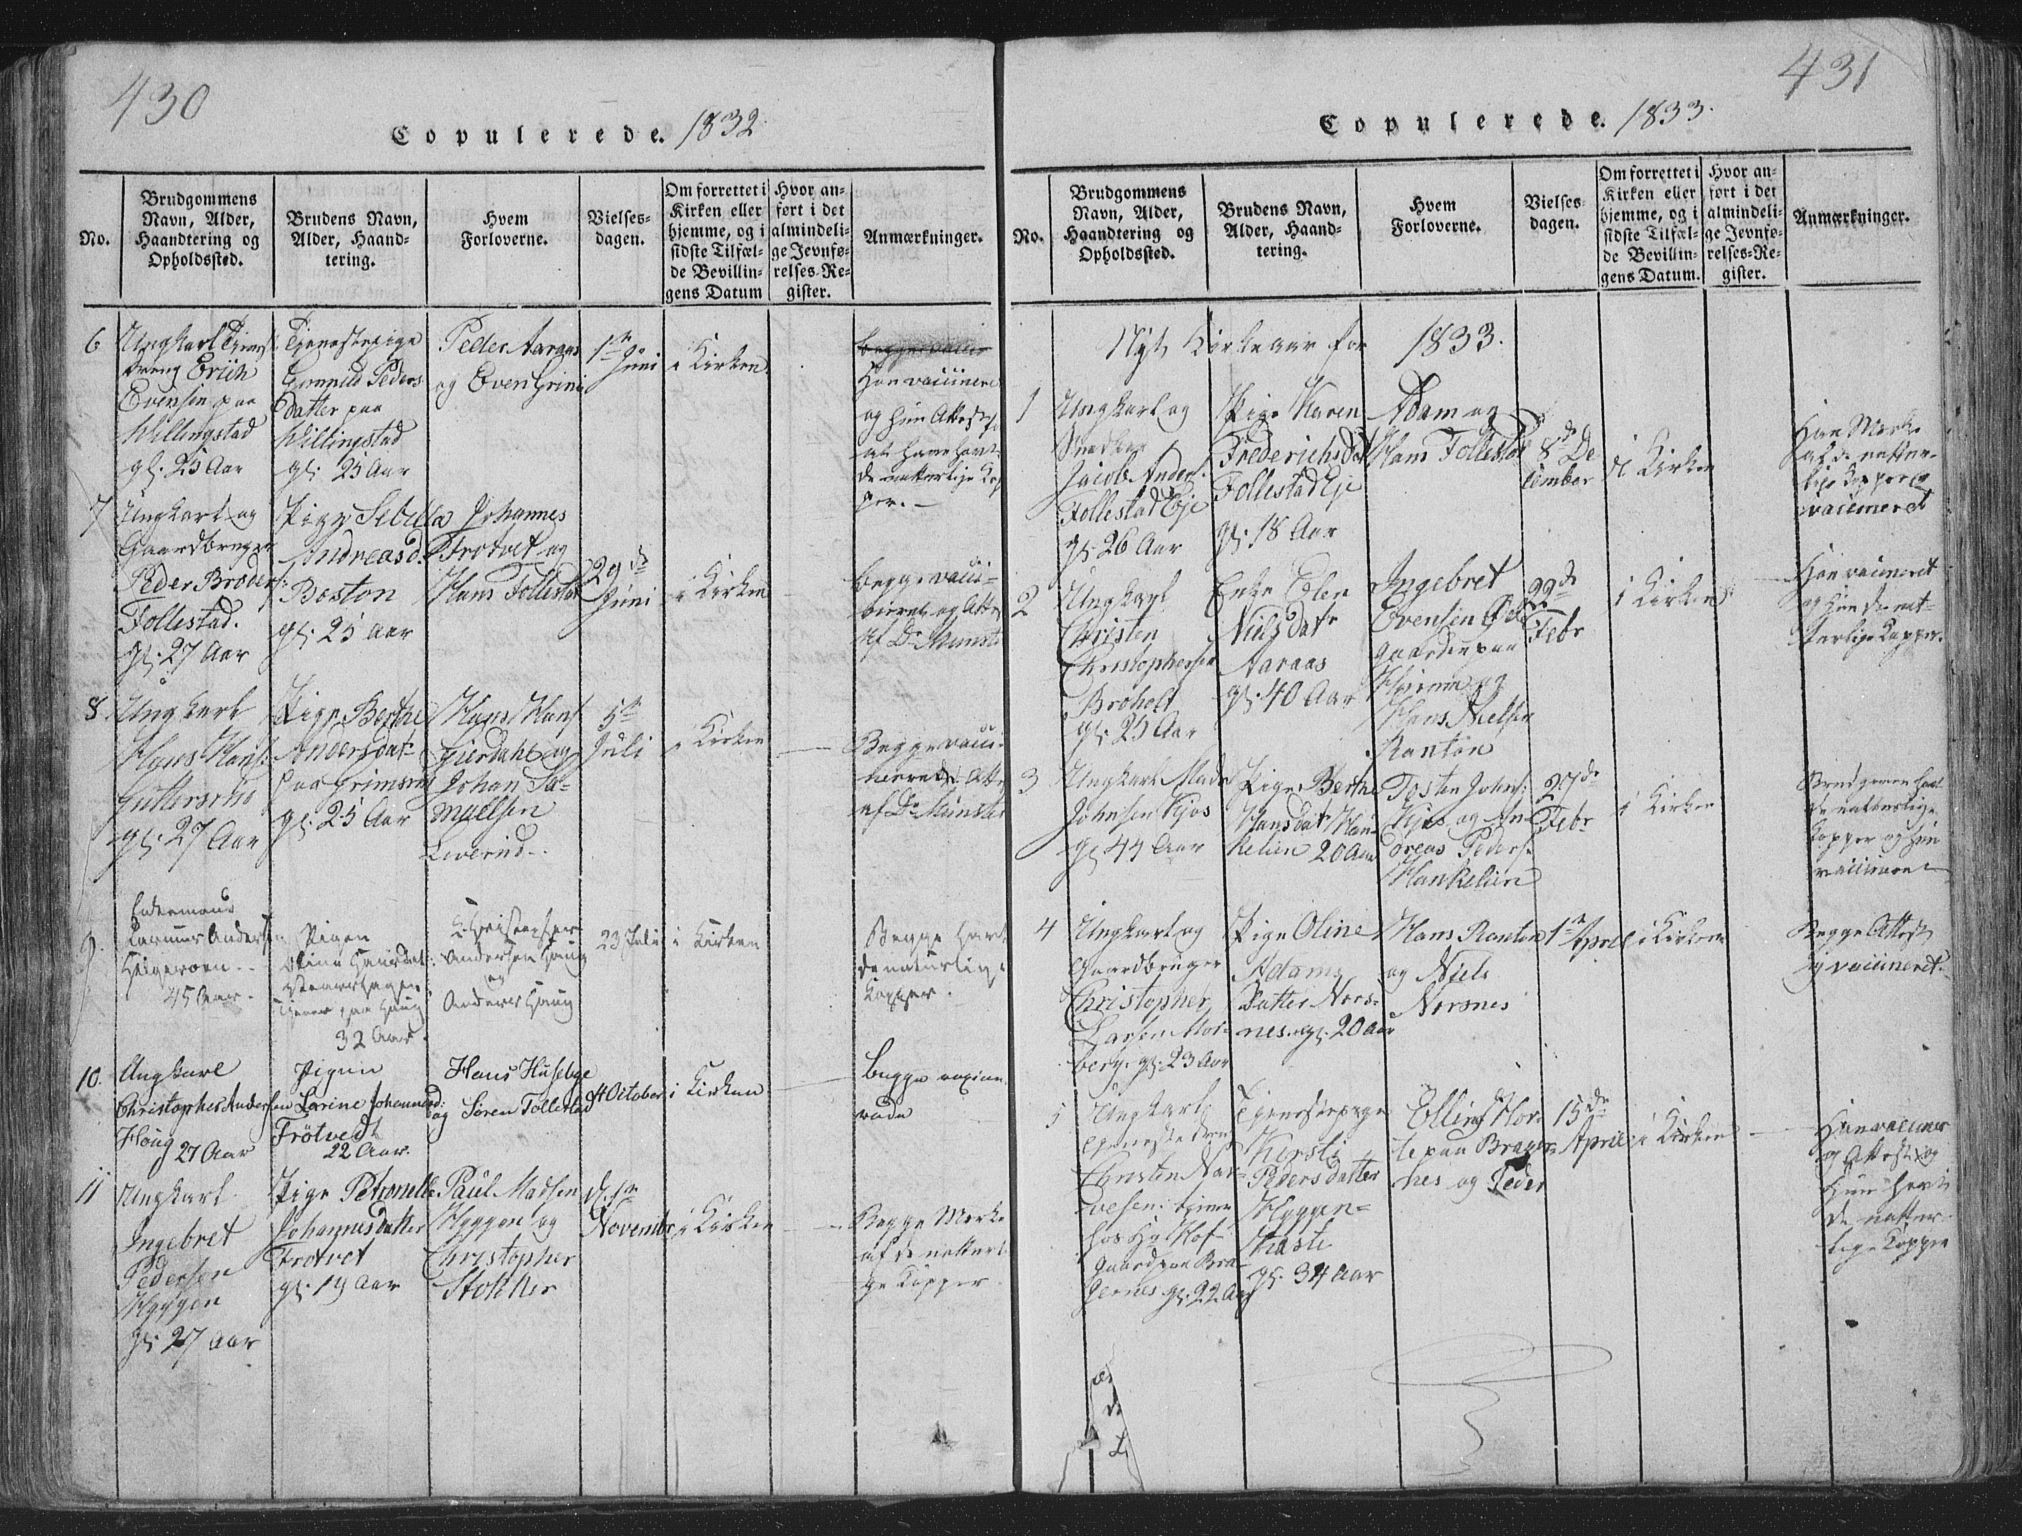 430
Copulerede. 1832.
No.
Brudgommens
Navn, Alder,
Haandtering og
Opholdssted.
Brudens Navn,
Alder, Haand=
tering.
Hvem
Forloverne.
Vielses=
dagen.
Om forrettet i
Kirken eller
hjemme, og i
sidste Tilfæl=
de Bevillin=
gens Datum
Hvor an=
ført i det
almindeli=
ge Jevnfø=
relses-Re=
gister.
Anmærkninger.
6
Ungkarl Tjenst
dreng Erich
Evensen paa
Willingstad
gl. 25 Aar
Tjenestepige
Gunnild Peders
datter paa
Willingstad
gl. 25 Aar
Peder Aaraas
og Even Grini
1te
Juni
i Kirken
Han vaccineret
og hun Attest
at have havt
de naturlige Kop
per.
7
Ungkarl og
Gaardbruger
Peder Broders:
Follestad.
gl. 27 Aar
Pige Sebilla
Andreasd.
Boston
gl. 25 Aar
Johannes
Frotvet og
Hans Follestad
29de
Juni
i Kirken
begge vacci-
neret og Attest
af Dr Munster
8.
Ungkarl
Hans Hans:
Gullersrud
gl. 27 Aar
Pige Berthe
Andersdatr
paa Grimsrud
gl. 25 Aar
Hans Hans
Gierdahl og
Johan Sa-
muelsen
Leverud.
5te
Juli
i Kirken
Begge vacci-
nerede Attest
af Dr Munster
9.
Enkemand
Rasmus Anders
Heigeroen.
45 Aar.
Pigen
Oline Hansdat:
tjener paa Haug
32 Aar.
Christopher
Andersen Haug
og
Anders Haug
23 Juli
i Kirken
Begge havt
de naturlige
Kopper.
10.
Ungkarl
Christopher Anders
Houg 27 Aar
Pigen
Lorine Johannesd:
Frötvedt
22 Aar.
Hans Husebye
og Sören Follestad
4 October
i Kirken
begge vaccine-
rede
11
Ungkarl
Ingebret
Pedersen
Hyggen
gl. 27 Aar
Pige Petronelle
Johannisdatter
Frotvet
gl. 19 Aar
Paul Madsen
Hyggen og
Christopher
Stokker
d. 1te
Novembr
i Kirken
Begge Merke
af de naturli
ge Kopper
431
Copulerede. 1833.
No.
Brudgommens
Navn, Alder,
Haandtering og
Opholdssted.
Brudens Navn,
Alder, Haand=
tering.
Hvem
Forloverne.
Vielses=
dagen.
Om forrettet i
Kirken eller
hjemme, og i
sidste Tilfæl=
de Bevillin=
gens Datum.
Hvor an=
ført i det
almindeli=
ge Jevnfø=
relses-Re=
gister.
Anmærkninger.
Nyt Kirkeaar for 1833.
1
Ungkarl og
Snedker
Jacob Anders:
Follestad Eje
gl. 26 Aar
Pige Karen
Frederichsdat
Follestad Eje
gl. 18 Aar
Adam og
Hans Follestad
8de De
cember
i Kirken
Han Merke
af de natur-
lige Kopper og
vaccineret
2
Ungkarl
Christen
Christophersen
Broholt
gl. 25 Aar
Enke Elen
Nielsdatr
Aaraas
gl. 40 Aar
Ingebret
Evensen Öde
gaarden paa
Hjerum og
Hans Nielsen
Ranton
22de
Febr
i Kirken
Han vaccineret
og hun de nat-
turlige Kopper.
3
Ungkarl Mads
Johnsen Kjos
gl. 44 Aar
Pige Berthe
Hansdatr Han-
kelien 20 Aar
Tosten Johns:
Kjos og An-
dreas Peders:
Hankelien
27de
Febr
i Kirken
Brudgomen havt
de naturlige
Kopper og hun
vaccineret
4
Ungkarl og
Gaardbruger
Christopher
Larsen Mor-
berg. gl. 23 Aar
Pige Oline
Adams
Datter Nors-
nes. gl. 20 Aar
Hans Ranton
og Niels
Norsnes
1te April
i Kirken
Begge Attest
og vaccineret.
5
Ungkarl
Tjenestedreng
Christen Nar-
vesen: tjener
hos Hr Hof-
gaard paa Bra-
gernes gl. 22 Aar
Tjenestepige
Kersti
Pedersdatter
Hyggen-
gl. 34 Aar
Elling Hor-
te paa Brager-
nes og Peder
15de
April
i Kirken
Han vaccineret
og Attest og
Hun havt
de natur-
lige Kopper